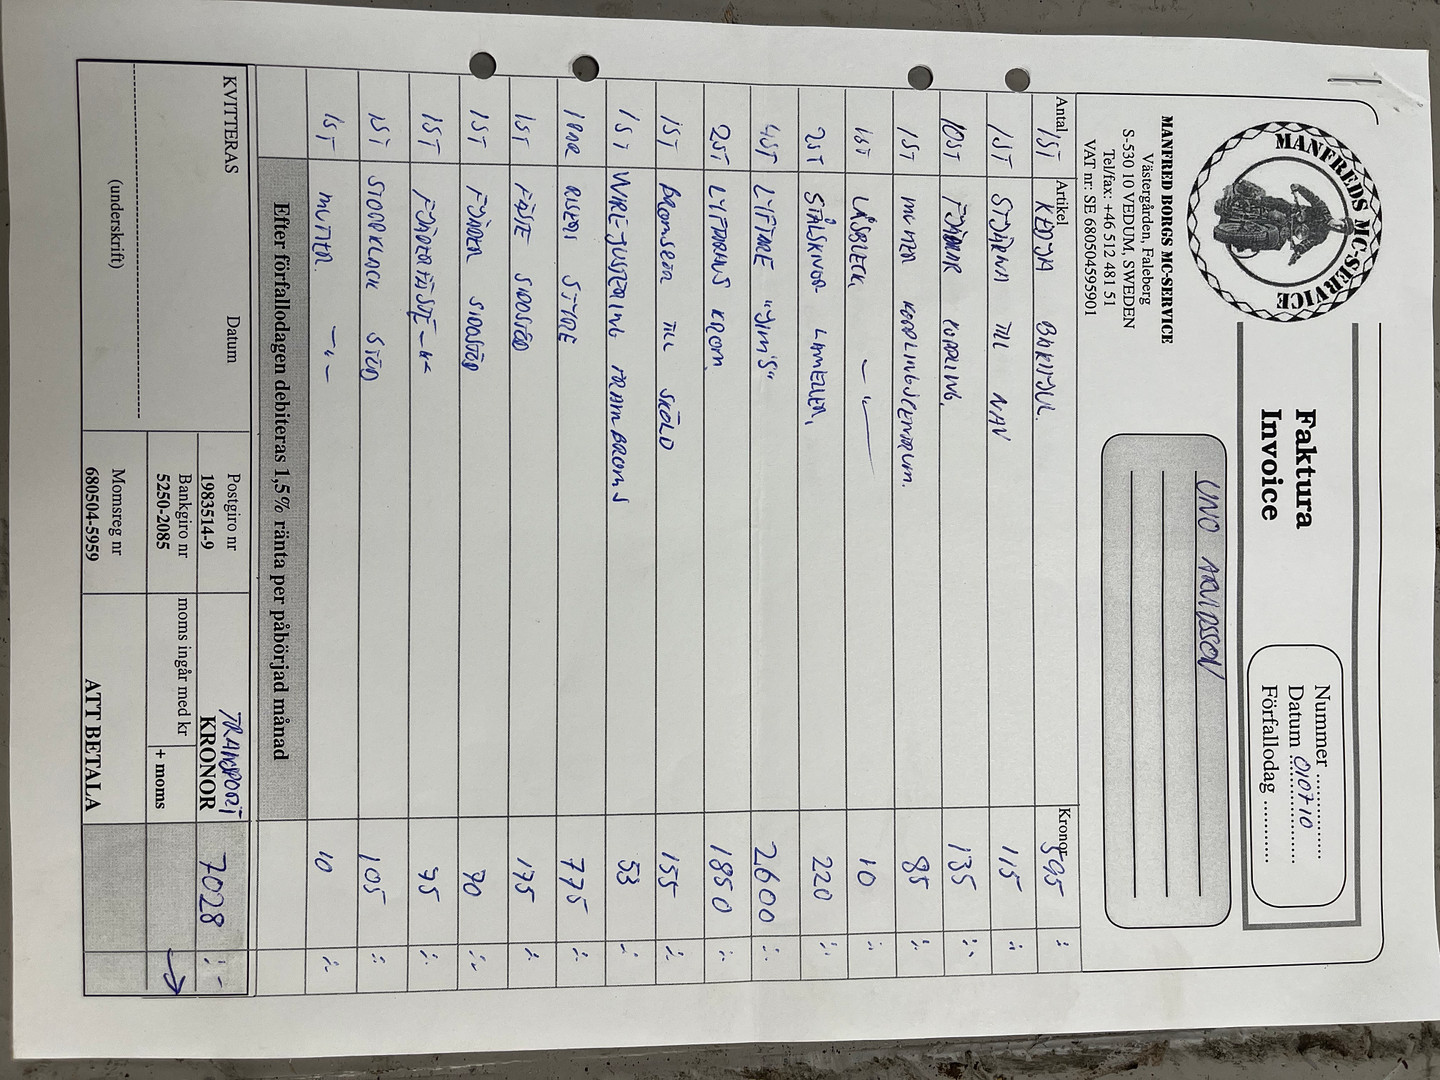 MANFREDS MC-SERVICE
Faktura
Invoice
Nummer
Datum 010710
Förfallodag
MANFRED BORGS MC-SERVICE
Västergården, Faleberg
S-530 10 VEDUM, SWEDEN
Tel/fax: +46 512 481 51
VAT nr: SE 680504595901
UNO ARVIDSSON
Antal Artikel Kronor
1ST KEDJA BAKHJUL. 595 :-
1ST STJÄRNA TILL NAV 115 :-
10ST FJÄDRAR KOPPLING. 135 :-
1ST MUTTER KOPPLINGSCENTRUM. 85 :-
1ST LÅSBLECK, -"- 10 :-
2ST STÅLSKIVOR LAMELLER, 220 :-
4ST LYFTARE "JIM'S" 2600 :-
2ST LYFTARHUS KROM, 1850 :-
1ST BROMSETA TILL SKÖLD 155 :-
1ST WIREJUSTERING FRAMBROMS 53 :-
STYRE 775 :-
1ST FÄSTE SIDOSTÖD 175 :-
1ST FJÄDER SIDOSTÖD 90 :-
1ST FJÄDERFÄSTE -"- :-
1ST STOPPKLACK STÖD 105 :-
1ST MUTTER -"- 10 :-
Efter förfallodagen debiteras 1,5% ränta per påbörjad månad
KVITTERAS Datum
(underskrift)
Postgiro nr
1983514-9
Bankgiro nr
5250-2085
Momsreg nr
680504-5959
TRANSPORT
KRONOR 7028 :-
moms ingår med kr + moms
ATT BETALA